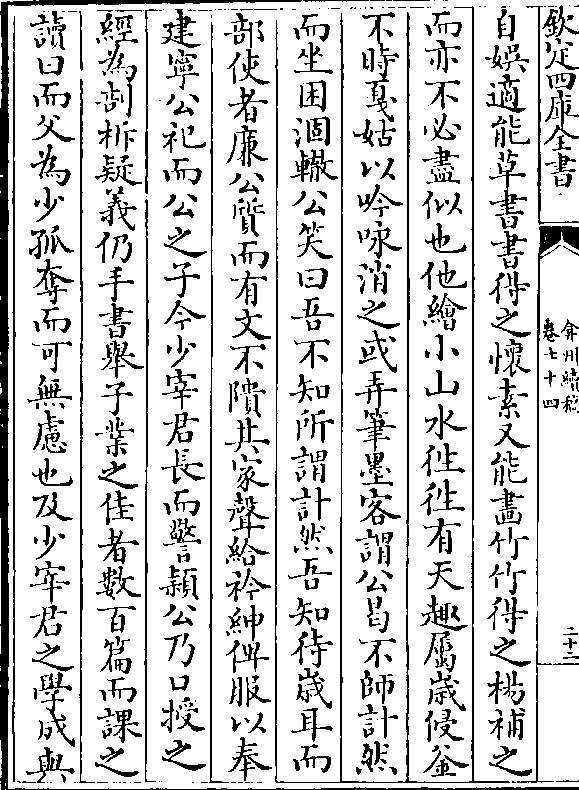 欽定四庫全書
弇州續稿
卷七十四
二十二
自娛適能草書書得之懷素又能畫竹竹得之楊補之
而亦不必盡似也他繪小山水徃徃有天趣屬歲侵釜
不時戞姑以吟咏消之或弄筆墨客謂公曷不師計然
而坐困涸轍公笑曰吾不知所謂計然吾知待歲耳而
部使者廉公質而有文不隤其家聲給衿紳俾服以奉
建寧公祀而公之子今少宰君長而警頴公乃口授之
經為剖析疑義仍手書舉子業之佳者數百篇而課之
讀曰而父為少孤奪而可無慮也及少宰君之學成與